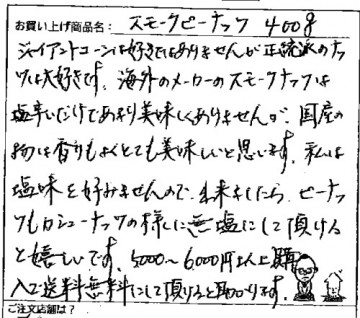 お買い上げ商品名: スモークピーナッツ 400g
ジャイアントコーンは好きではありませんが正統派のナッ
ツは大好きです。海外のメーカーのスモークナッツは
塩辛いだけであまり美味しくありませんが、国産の
物は香りもよくとても美味しいと思います。私は
塩味を好みませんので、出来ましたら、ピーナッ
ツもカシューナッツの様に無塩にして頂ける
と嬉しいです。5,000～6,000円以上購
入で送料無料にして頂けると助かります。
ご注文店舗は?